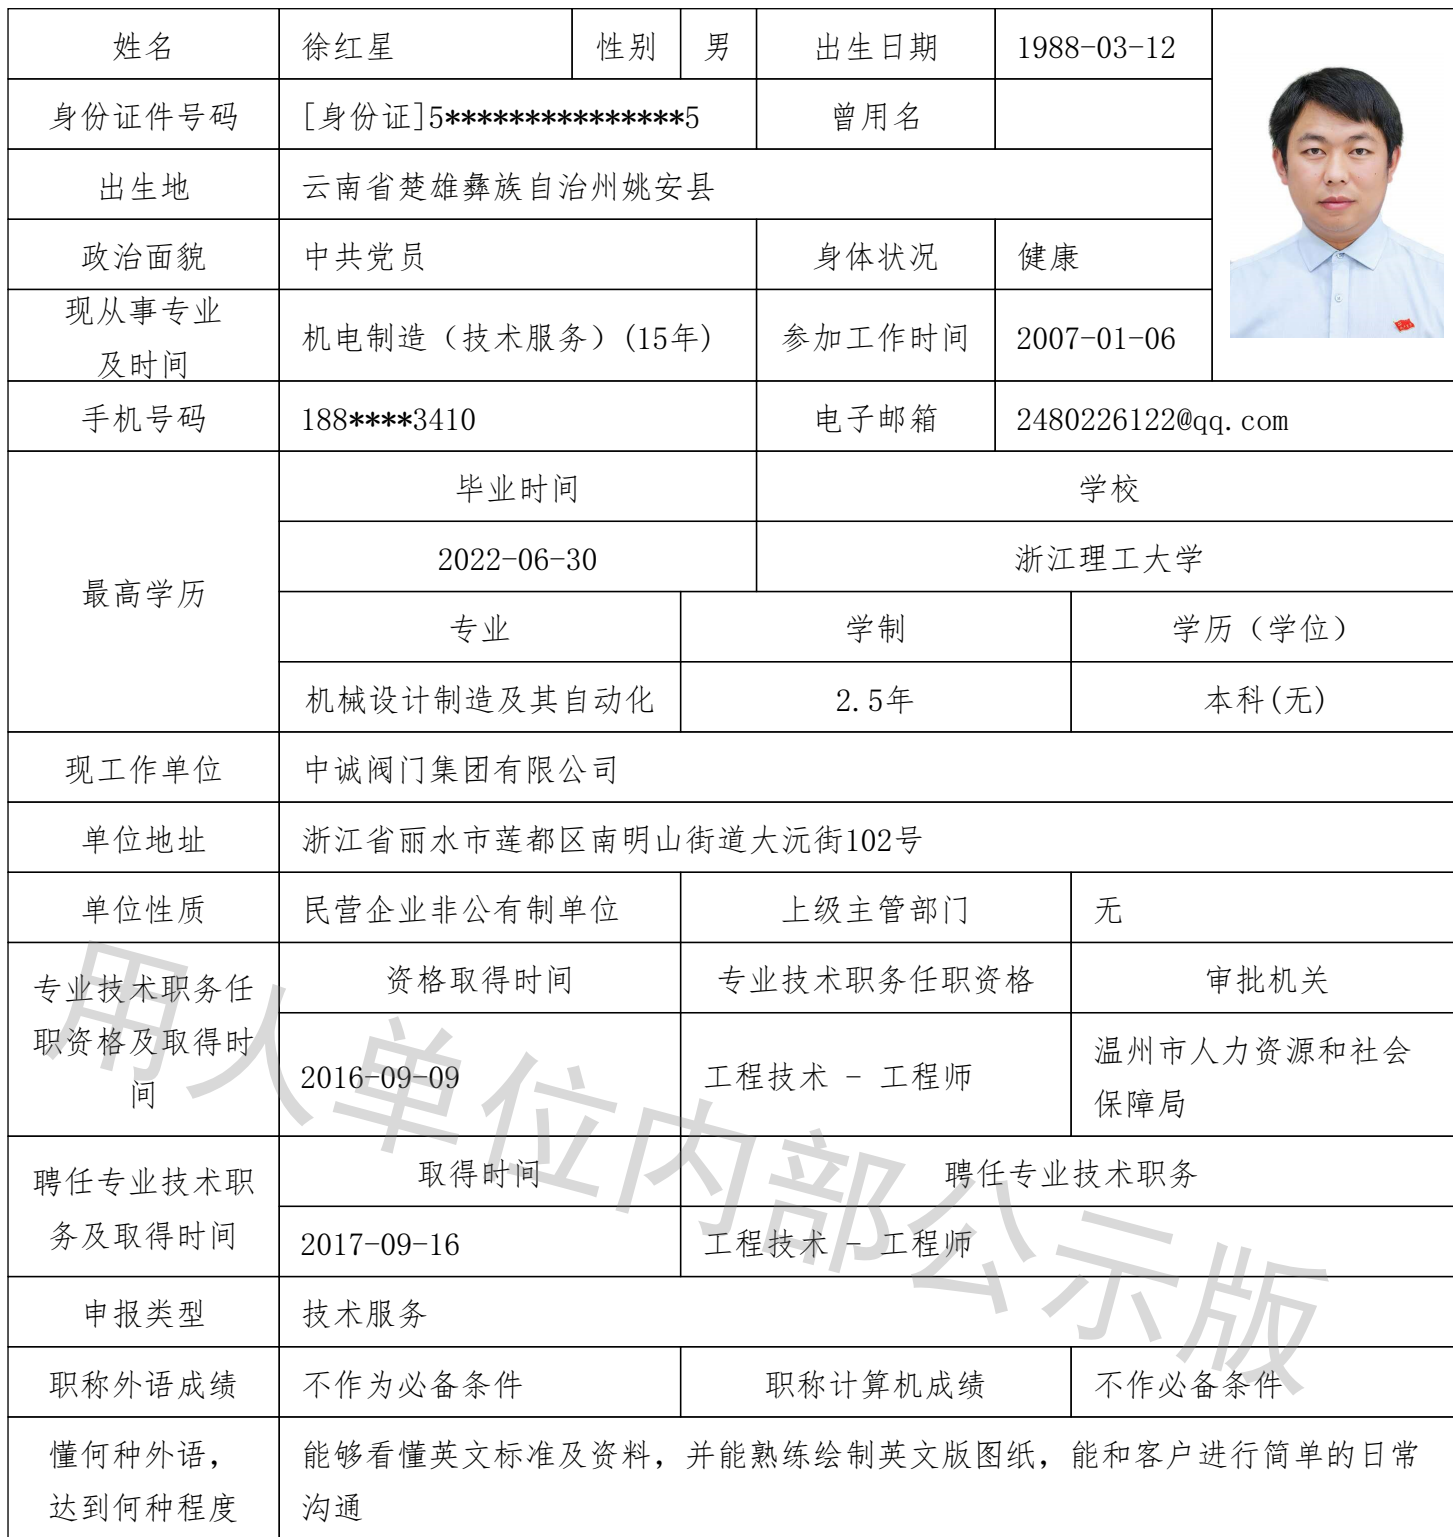 姓名 徐红星 性别 男 出生日期 1988-03-12
身份证件号码 [身份证]5***************5 曾用名
出生地 云南省楚雄彝族自治州姚安县
政治面貌 中共党员 身体状况 健康
现从事专业
及时间
机电制造（技术服务）(15年) 参加工作时间 2007-01-06
手机号码 188****3410 电子邮箱 2480226122@qq.com
最高学历
毕业时间 学校
2022-06-30 浙江理工大学
专业 学制 学历（学位）
机械设计制造及其自动化 2.5年 本科(无)
现工作单位 中诚阀门集团有限公司
单位地址 浙江省丽水市莲都区南明山街道大沅街102号
单位性质 民营企业非公有制单位 上级主管部门 无
专业技术职务任
职资格及取得时
间
资格取得时间 专业技术职务任职资格 审批机关
2016-09-09 工程技术 - 工程师
温州市人力资源和社会
保障局
聘任专业技术职
务及取得时间
取得时间 聘任专业技术职务
2017-09-16 工程技术 - 工程师
申报类型 技术服务
职称外语成绩 不作为必备条件 职称计算机成绩 不作必备条件
懂何种外语，
达到何种程度
能够看懂英文标准及资料，并能熟练绘制英文版图纸，能和客户进行简单的日常
沟通
用人单位内部公示版